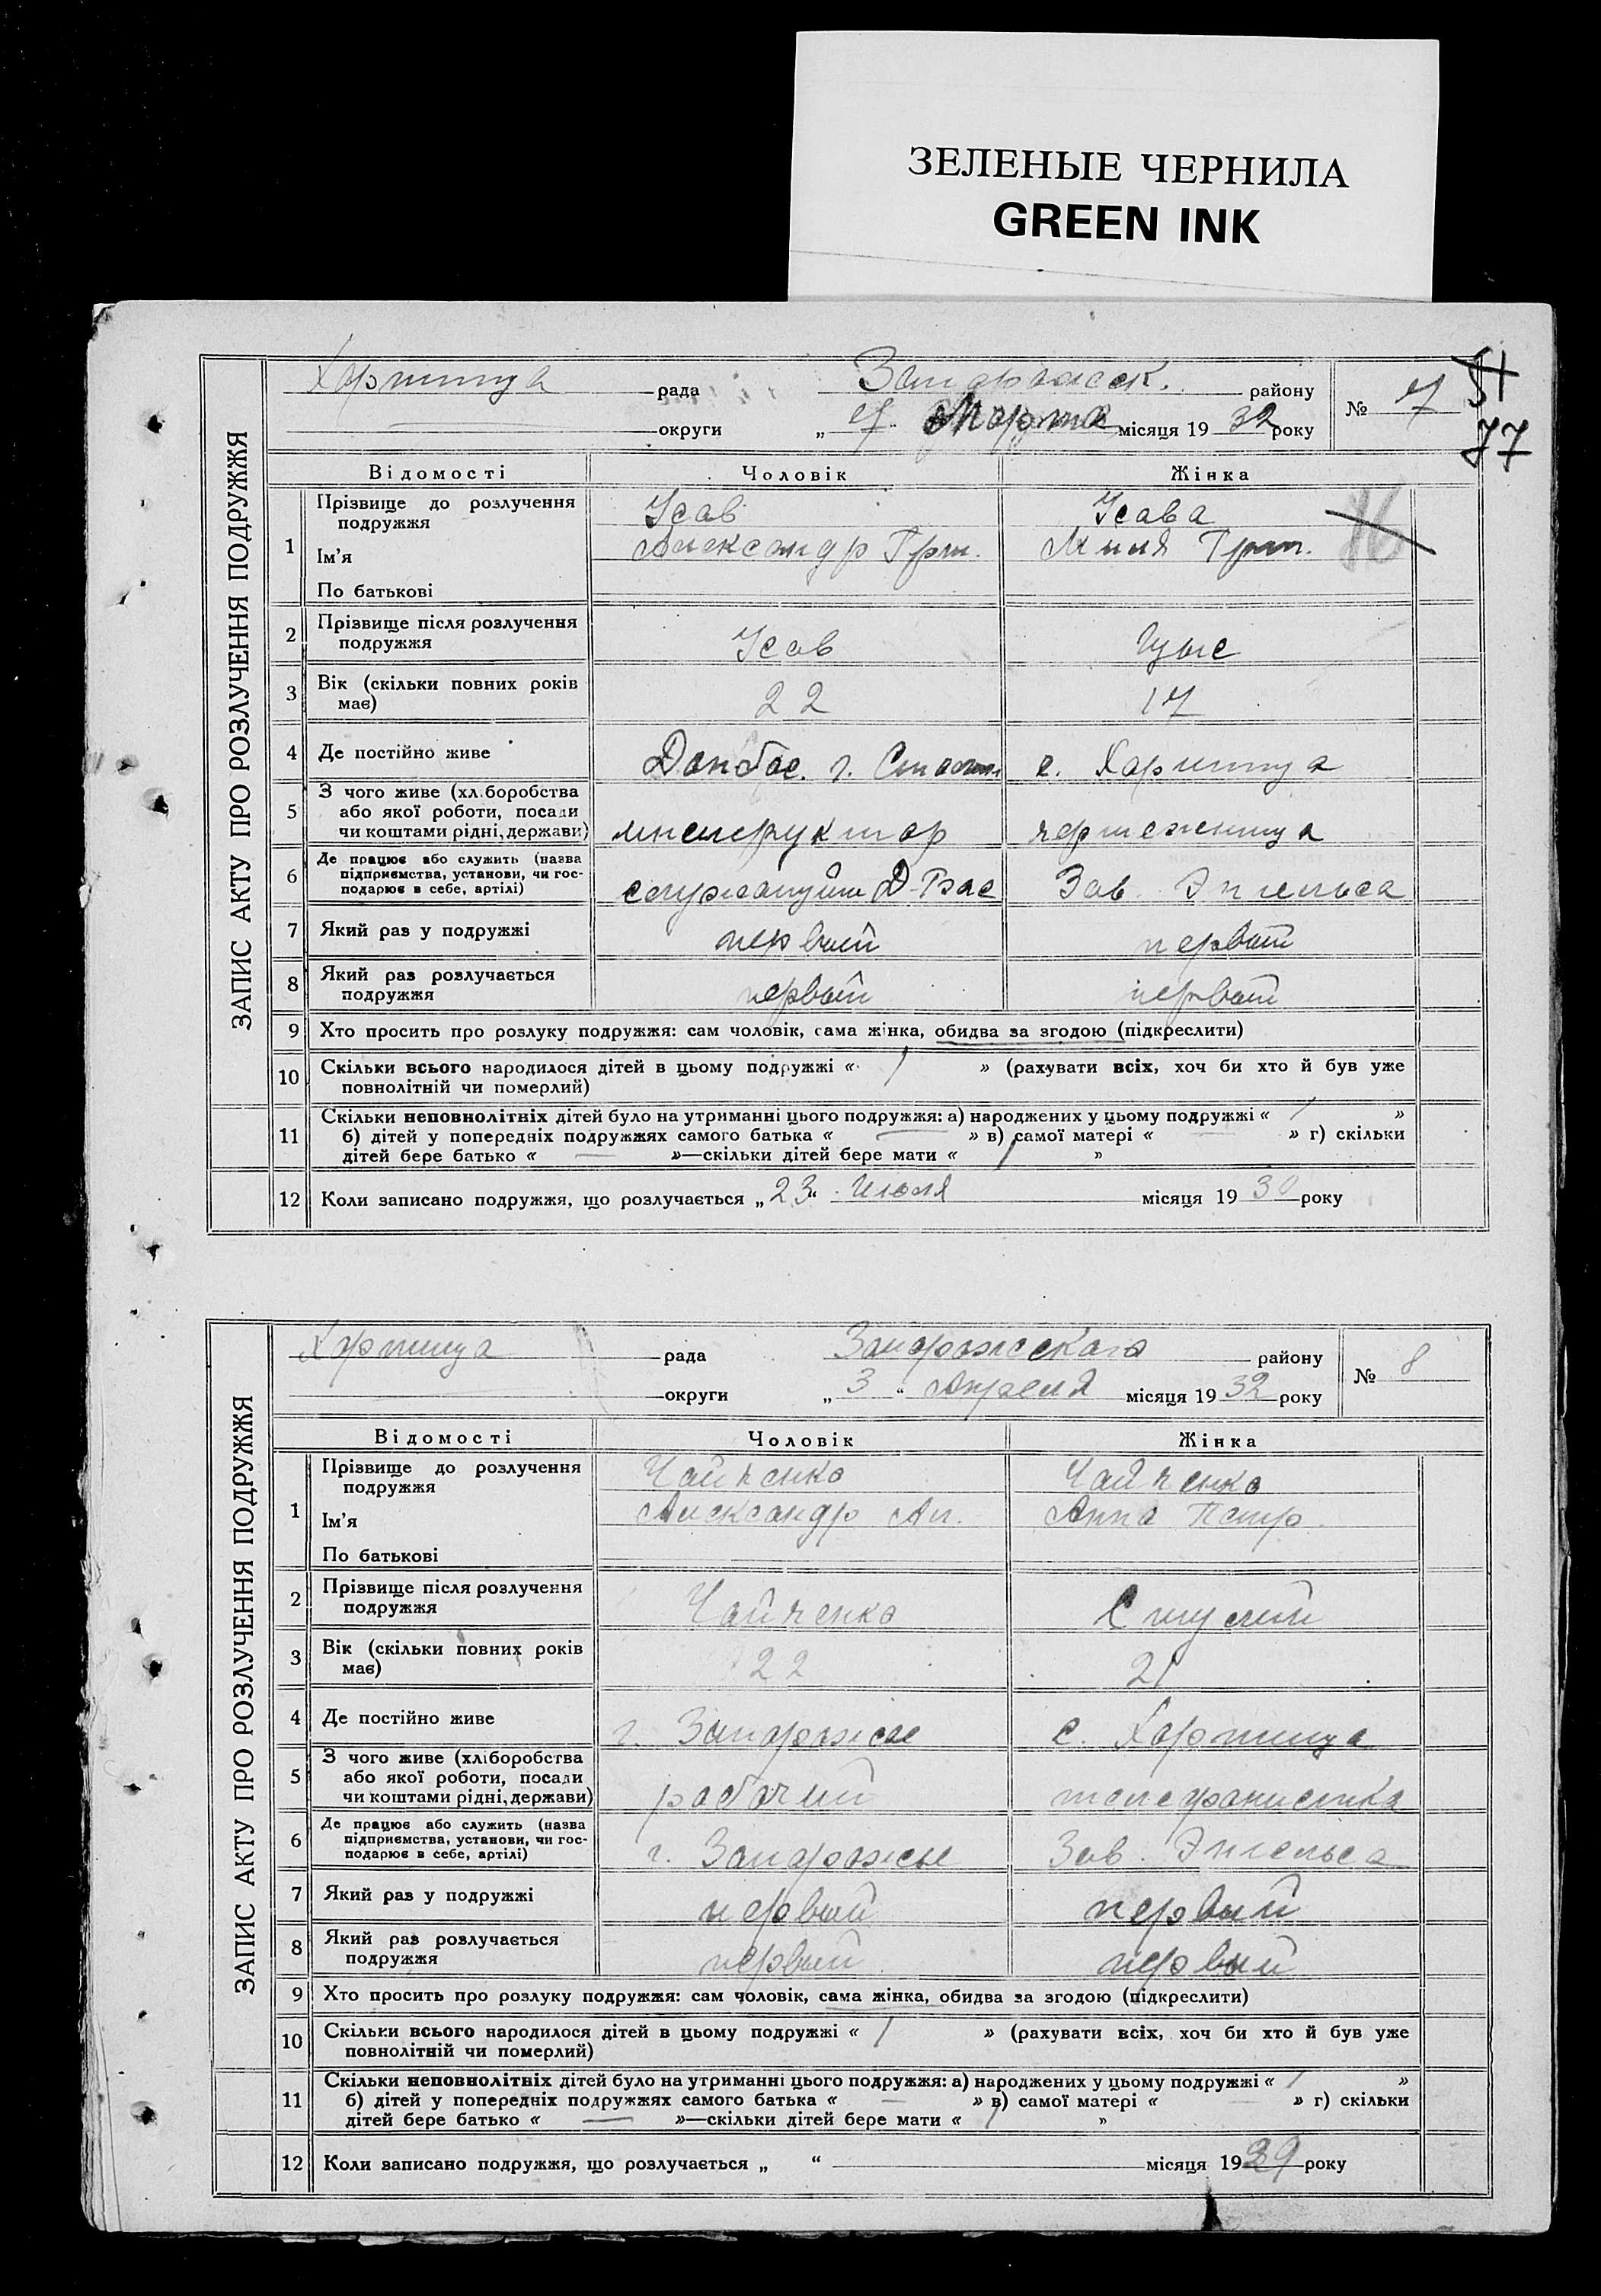 ЗЕЛЕНЫЕ ЧЕРНИЛА
GREEN INK
77
ЗАПИС АКТУ ПРО РОЗЛУЧЕННЯ ПОДРУЖЖЯ
Хортица рада Запорожск. району № 7
округи „ 7 “ Марта місяця 19 32 року
Відомості Чоловік Жінка
1 Прізвище до розлучення подружжя Усов Усова
Ім’я Александр Григ.
По батькові
2 Прізвище після розлучення подружжя Усов
3 Вік (скільки повних років має) 22 17
4 Де постійно живе Донбас. г. с. Хортица
5 З чого живе (хліборобства
або якої роботи, посади
чи коштами рідні, держави) инструктор чертежница
6 Де працює або служить (назва
підприємства, установи, чи гос-
подарює в себе, артілі) Зав. Энгельса
7 Який раз у подружжі первый первый
8 Який раз розлучається
подружжя первый первый
9 Хто просить про розлуку подружжя: сам чоловік, сама жінка, обидва за згодою (підкреслити)
10 Скільки всього народилося дітей в цьому подружжі « 1 » (рахувати всіх, хоч би хто й був уже
повнолітній чи померлий)
11 Скільки неповнолітніх дітей було на утриманні цього подружжя: а) народжених у цьому подружжі « 1 »
б) дітей у попередніх подружжях самого батька « — » в) самої матері « — » г) скільки
дітей бере батько « — »—скільки дітей бере мати « 1 »
12 Коли записано подружжя, що розлучається „ 23 “ Июля місяця 19 30 року
ЗАПИС АКТУ ПРО РОЗЛУЧЕННЯ ПОДРУЖЖЯ
Хортица рада Запорожского району № 8
округи „ 3 “ Апреля місяця 19 32 року
Відомості Чоловік Жінка
1 Прізвище до розлучення
подружжя Чайченко Чайченко
Ім’я Александр Ал. Анна Петр.
По батькові
2 Прізвище після розлучення
подружжя Чайченко
3 Вік (скільки повних років
має) 22 21
4 Де постійно живе г. Запорожье с. Хортица
5 З чого живе (хліборобства
або якої роботи, посади
чи коштами рідні, держави) рабочий телефонистка
6 Де працює або служить (назва
підприємства, установи, чи гос-
подарює в себе, артілі) г. Запорожье Зав. Энгельса
7 Який раз у подружжі первый первый
8 Який раз розлучається
подружжя первый первый
9 Хто просить про розлуку подружжя: сам чоловік, сама жінка, обидва за згодою (підкреслити)
10 Скільки всього народилося дітей в цьому подружжі « 1 » (рахувати всіх, хоч би хто й був уже
повнолітній чи померлий)
11 Скільки неповнолітніх дітей було на утриманні цього подружжя: а) народжених у цьому подружжі « 1 »
б) дітей у попередніх подружжях самого батька « — » в) самої матері « — » г) скільки
дітей бере батько « — »—скільки дітей бере мати « 1 »
12 Коли записано подружжя, що розлучається „ “ місяця 19 29 року